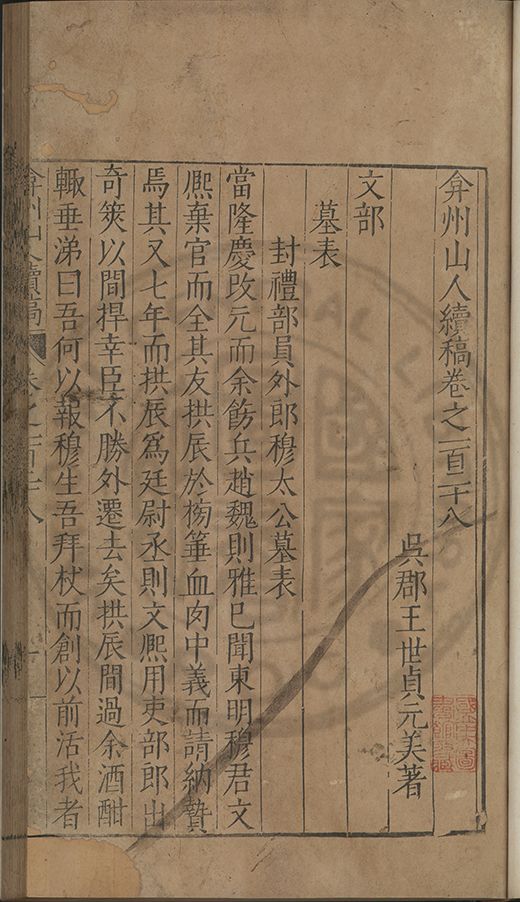 弇州山人續稿卷之一百二十八
吳郡王世貞元美著
文部
墓表
封禮部員外郎穆太公墓表
當隆慶改元而余飭兵趙魏則雅已聞東明穆君文
熈棄官而全其友拱辰於杨箠血肉中義而請納贄
焉其又七年而拱辰爲廷尉丞則文熈用吏部郎出
奇筴以間捍幸臣不勝外遷去矣拱辰間過余酒酣
輙垂涕曰吾何以報穆生吾拜杖而創以前活我者
弇州山人續稿
卷之一百二十八
一